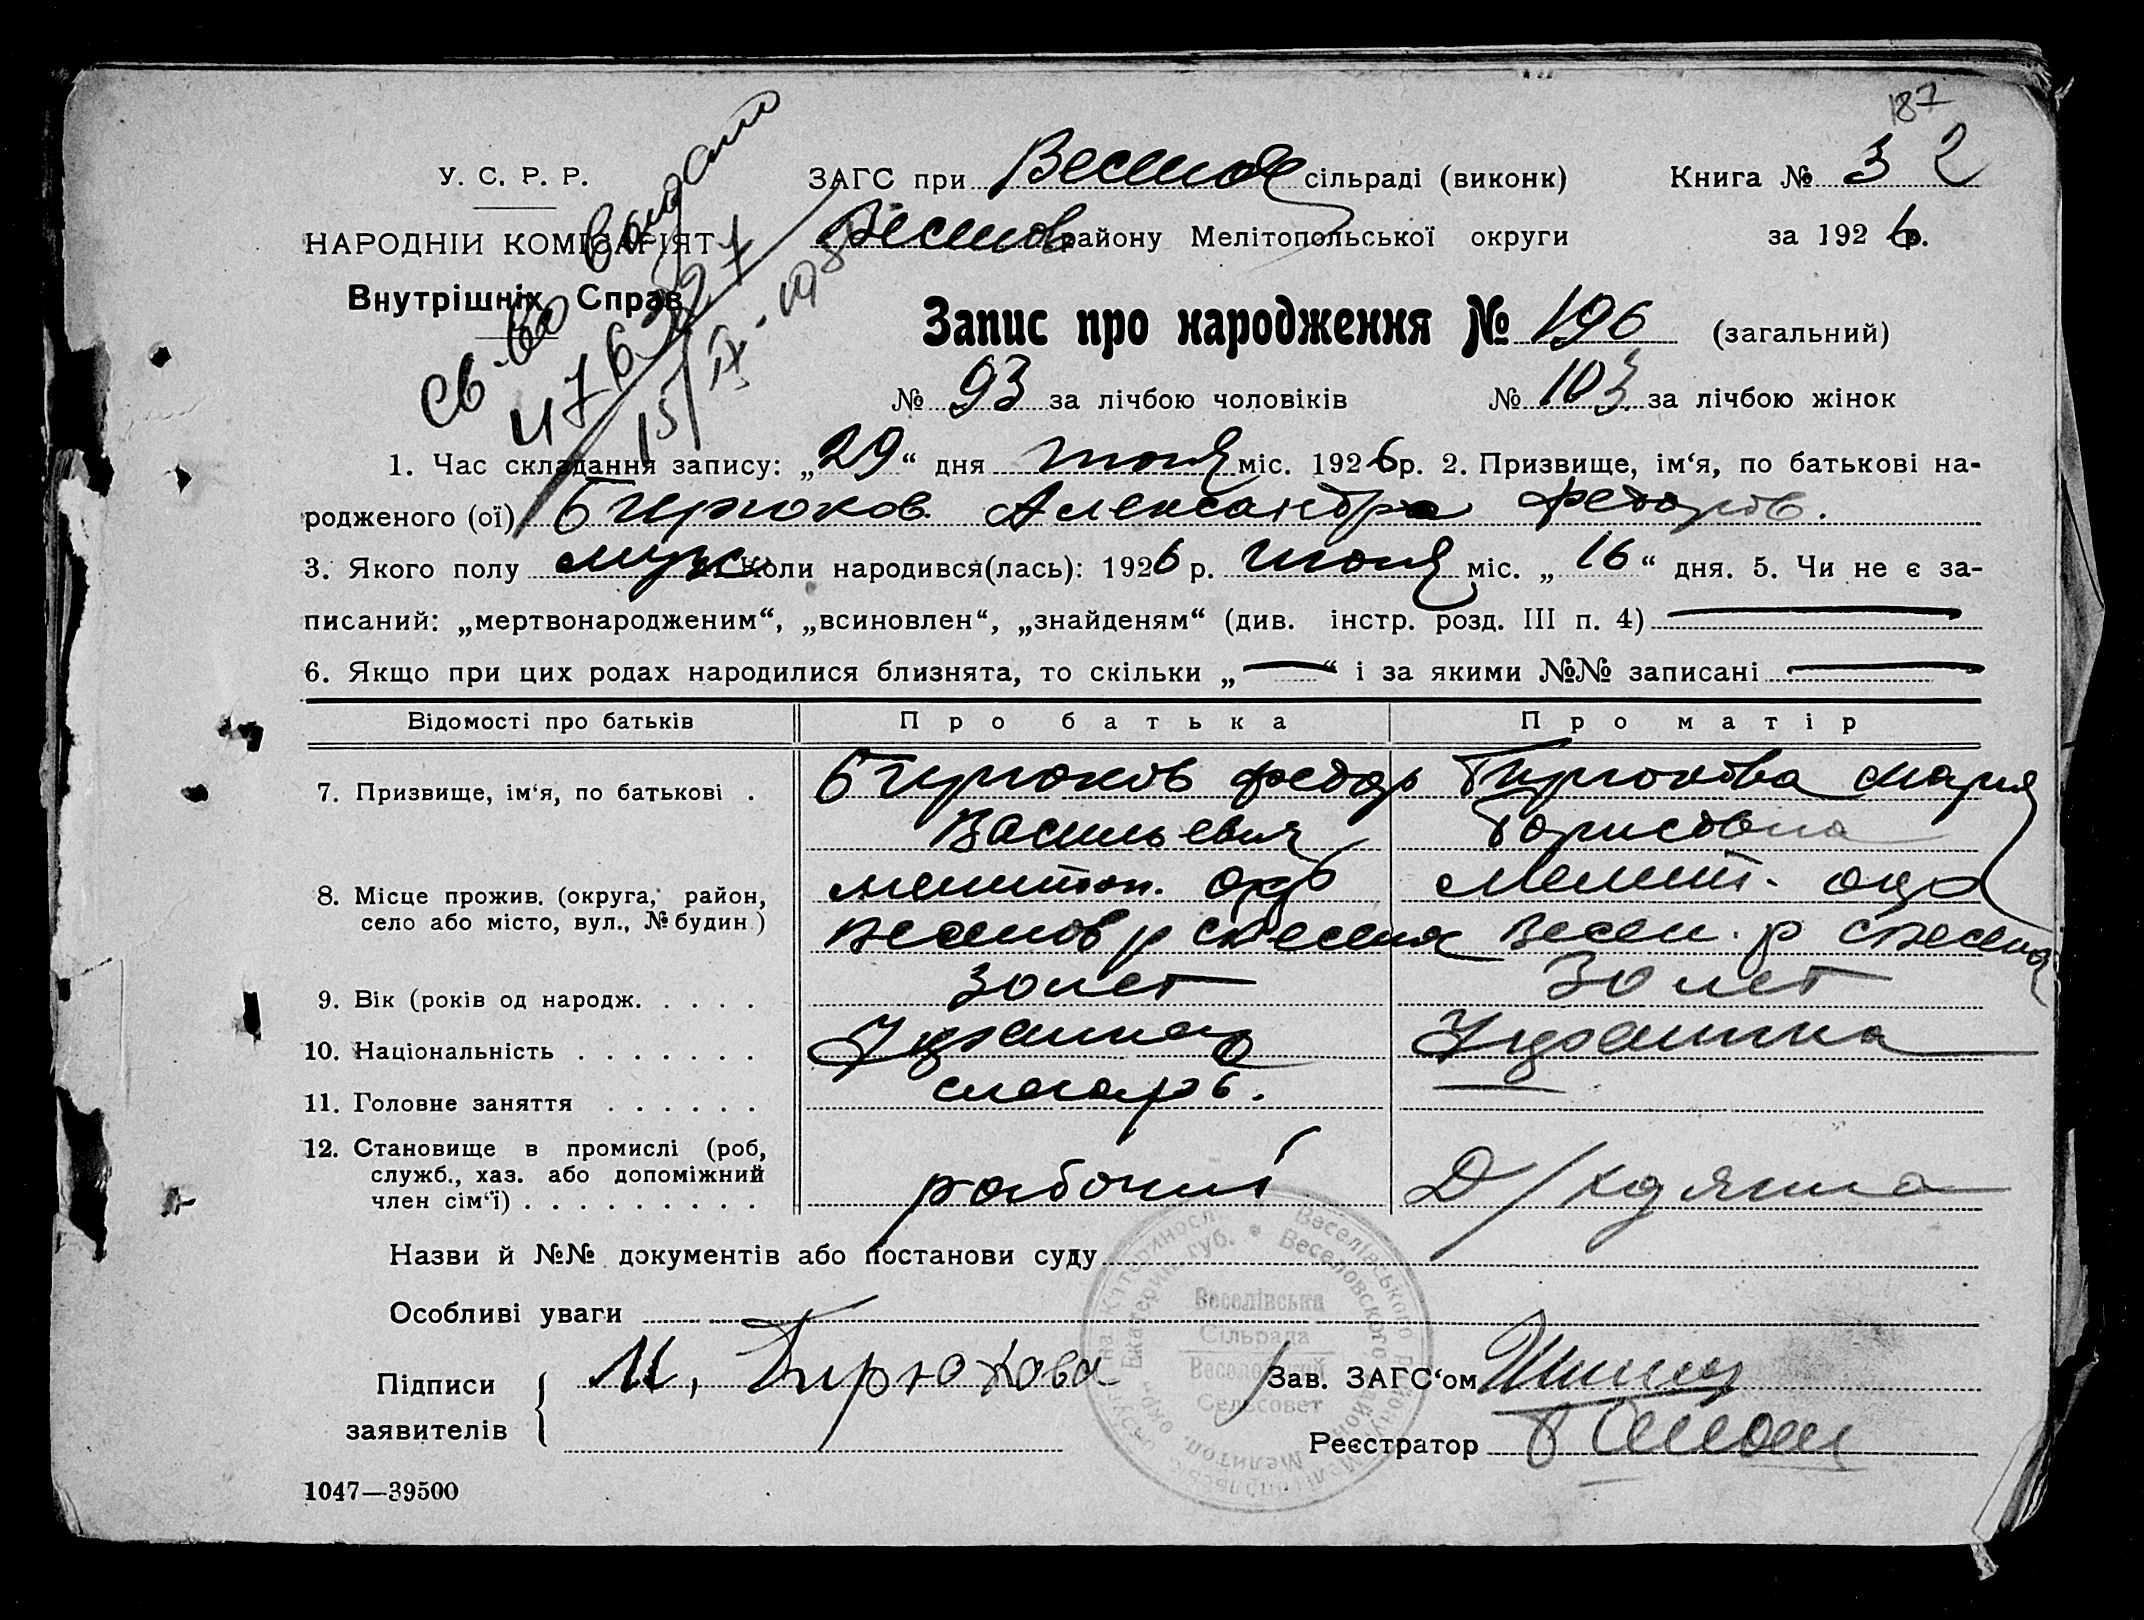 187
У. С. Р. Р.
ЗАГС при Весилой сільраді (виконк)
Книга № 3 2
НАРОДНІЙ КОМІСАРІЯТ
Весилов району Мелітопольської округи
за 1926 р.
Внутрішніх Справ
Св-во выдано
15/IX-
Запис про народження № 196 (загальний)
№ 93 за лічбою чоловіків № 103 за лічбою жінок
1. Час складання запису: „29“ дня июня міс. 1926 р. 2. Призвище, ім‘я, по батькові на-
родженого (ої) Бирюков Александра Федоров.
3. Якого полу муж Коли народився(лась): 1926 р. июня міс. „16“ дня. 5. Чи не є за-
писаний: „мертвонародженим“, „всиновлен“, „знайденям“ (див. інстр. розд. III п. 4)
6. Якщо при цих родах народилися близнята, то скільки „—“ і за якими №№ записані
Відомості про батьків Про батька Про матір
7. Призвище, ім‘я, по батькові . Бирюков Федор Бирюкова Мария
Васильевич Борисовна
8. Місце прожив. (округа, район, село або місто, вул., № будин.) мелитоп. окр Мелит. окр
веселов р с веселая Весел. р с весела
9. Вік (років од народж. . . . . 30 лет 30 лет
10. Національність . . . . . . . Украинец Украинка
11. Головне заняття . . . . . . слесарь.
12. Становище в промислі (роб,
служб., хаз. або допоміжний
член сім‘ї) . . . . . . . . . рабочий Д/хазяика
Назви й №№ документів або постанови суду
Особливі уваги
Підписи
заявителів
М. Бирюкова
Веселівська
Сільрада
Веселовский
Сельсовет
Зав. ЗАГС‘ом
Реєстратор
1047—39500